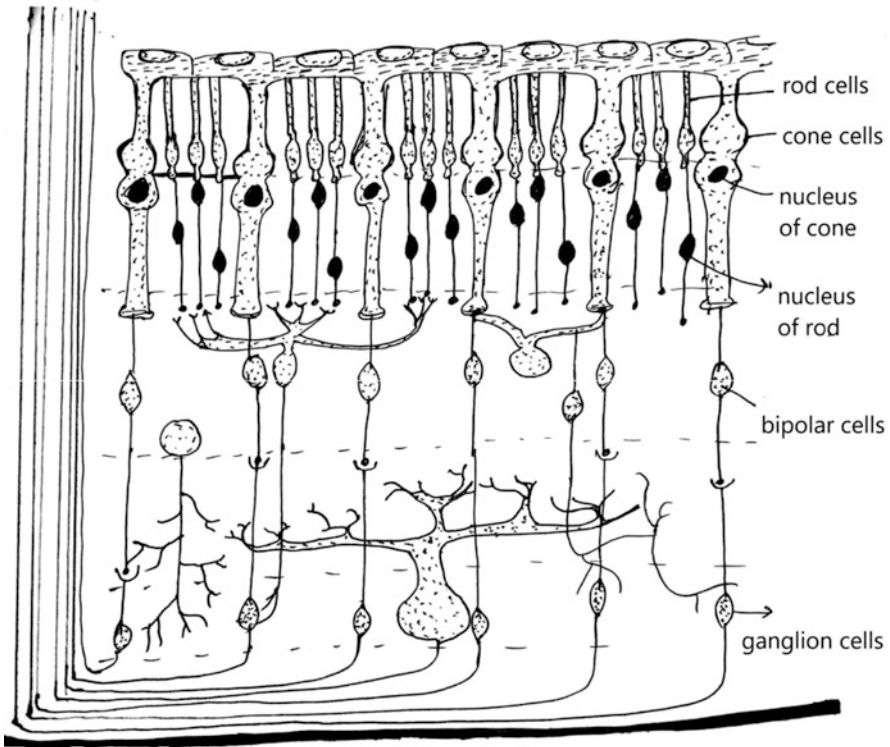 rod cells
cone cells
nucleus
of cone
nucleus
of rod
bipolar cells
ganglion cells